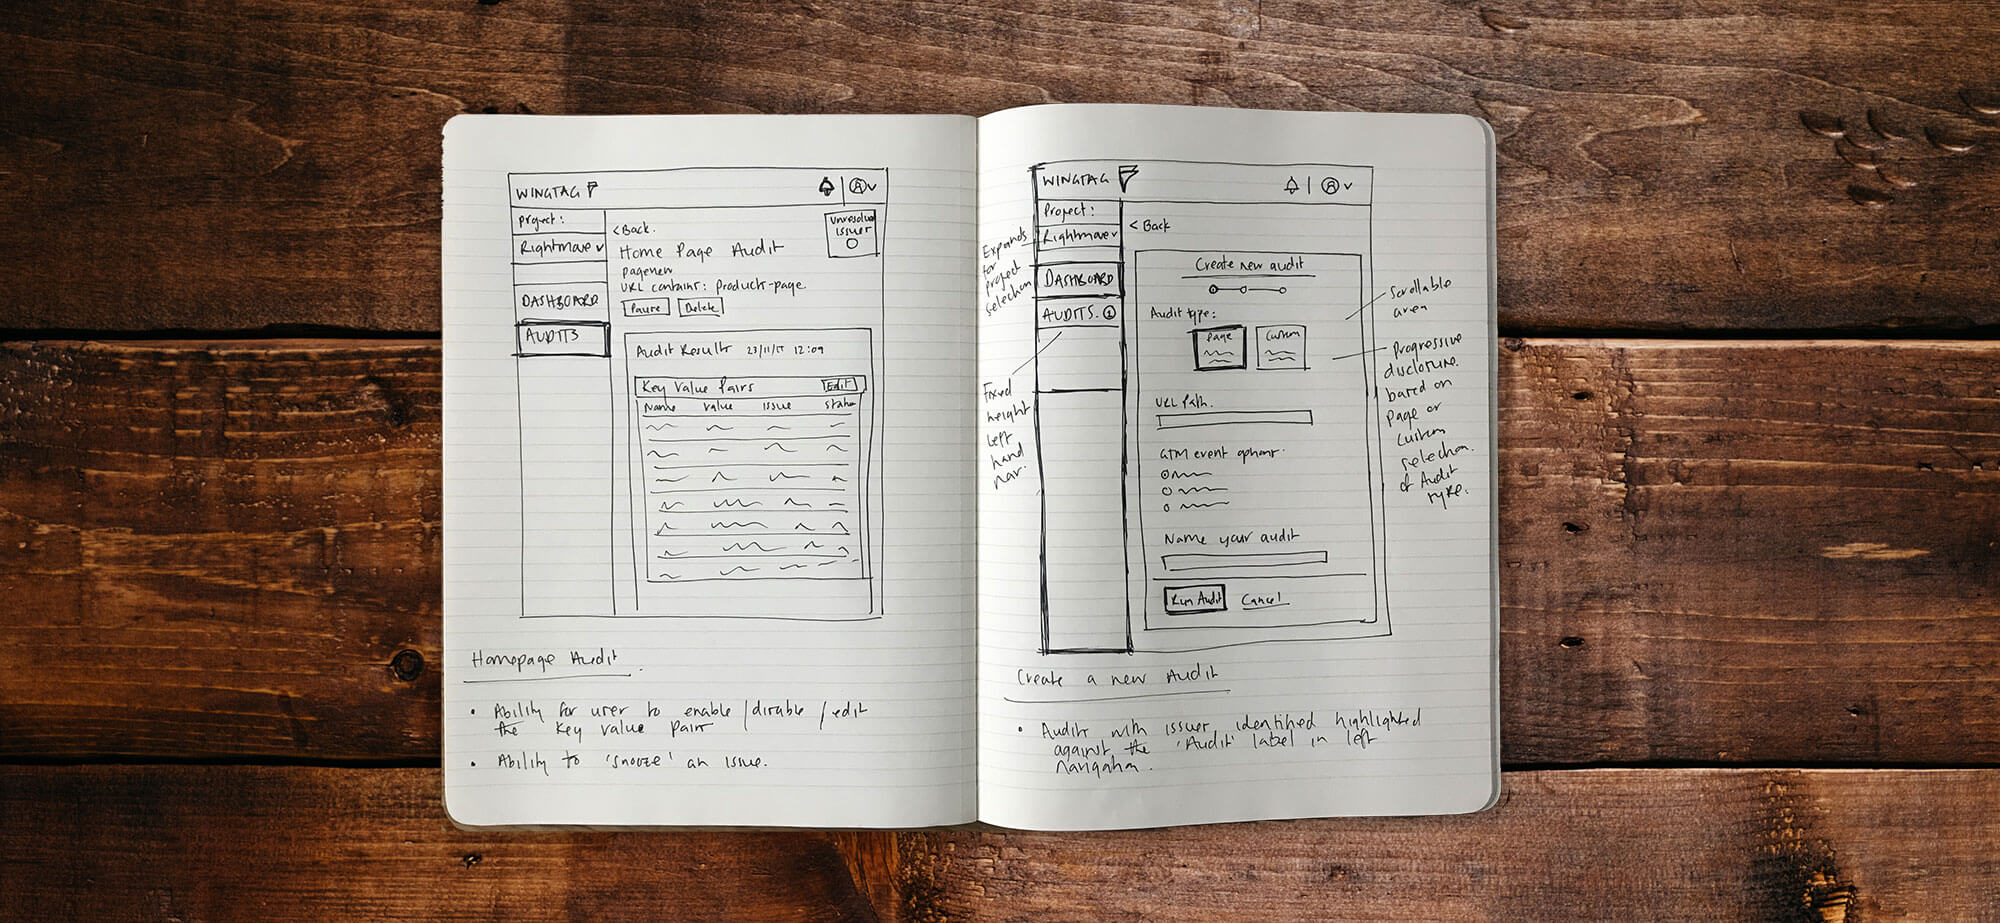 WINGTAG
Project:
Rightmove
DASHBOARD
AUDITS
Unresolved
issues
< Back.
Home Page Audit
pageview
URL contains: Products-page.
Pause Delete
Audit Results 12:09
Key Value Pairs Edit
Name value issue status
Homepage Audit
• Ability for user to enable / disable / edit
the key value pair
• Ability to 'snooze' an issue.
WINGTAG
Project:
Rightmove
DASHBOARD
AUDITS. 1
Expands
for
project
selection
Fixed
height
left
hand
nav.
< Back
Create new audit
Audit type:
Page Custom
URL Path.
GTM event options:
Name your audit
Run Audit Cancel
Scrollable
area
Progressive
disclosure.
based on
Page or
Custom
selection.
of Audit
type.
Create a new Audit
• Audits with issues identified highlighted
against the 'Audit' label in left
navigation.